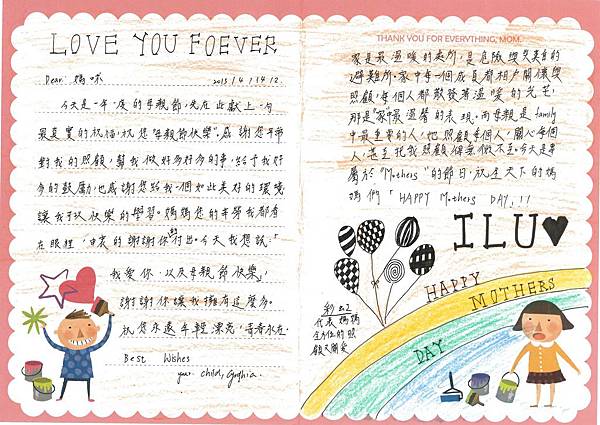 LOVE YOU FOEVER
Dear 媽咪
2013/4/14.12.
今天是一年一度的母親節,先在此獻上一句
最真實的祝福,祝您"母親節快樂"。感謝您平常
對我的照顧,幫我做好多好多的事,給予我好
多的鼓勵,也感謝您給我一個如此美好的環境,
讓我可以快樂的學習。媽媽您的辛勞我都看
在眼裡,由衷的謝謝你的付出。今天我想說:「
我愛你,以及母親節快樂」
謝謝你讓我擁有這麼多。
祝您永遠年輕漂亮,青春永在.
Best Wishes
your child, Cynthia.
THANK YOU FOR EVERYTHING, MOM.
家是最溫暖的處所,是危險與災害的
避難所。家中每一個成員都相戶關懷與
照顧,每個人都散發著溫暖的光芒,
那是"家"最溫馨的表現。而母親是family
中最重要的人,他照顧每個人,關心每個
人,甚至把我照顧得無微不至。今天是專
屬於"Mothers"的節日,祝全天下的媽
媽們「HAPPY Mothers DAY」!!
ILU♥
彩虹
代表媽媽
全方位的照
顧及關愛
HAPPY
MOTHERS
DAY